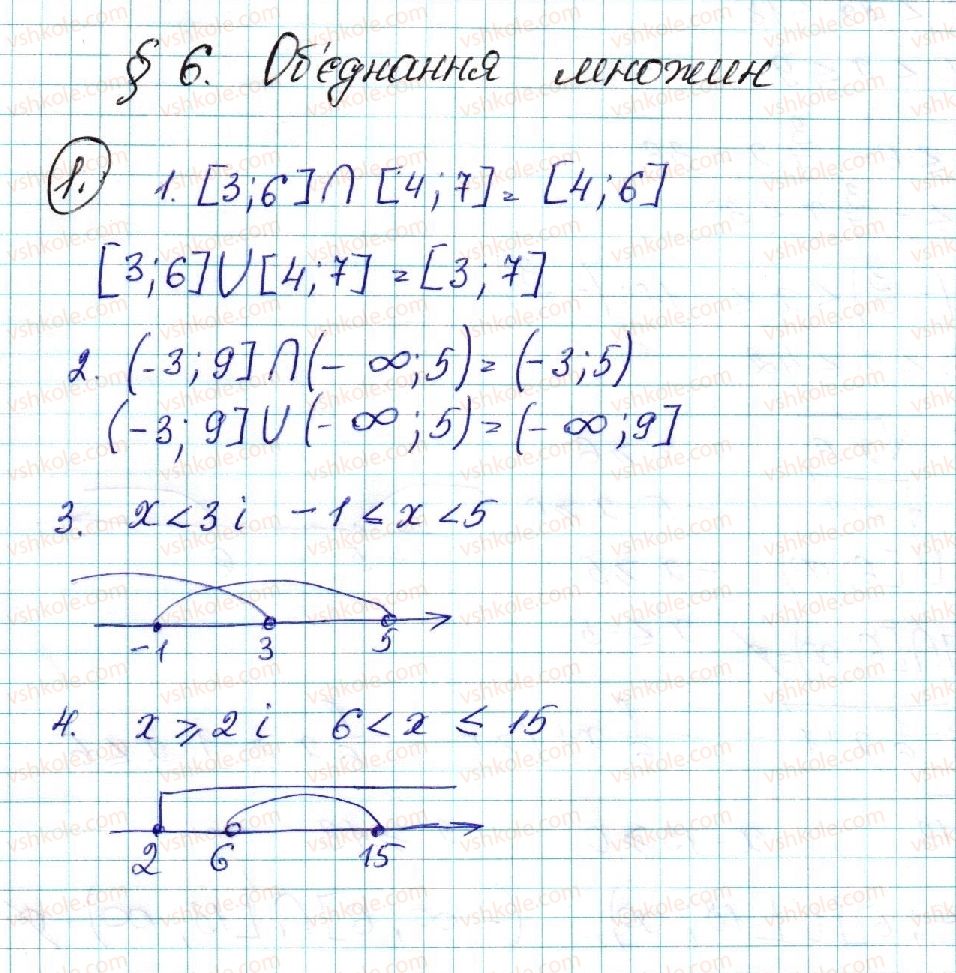 § 6. Об'єднання множин
1. 1. [3; 6] ∩ [4; 7] = [4; 6]
[3; 6] ∪ [4; 7] = [3; 7]
2. (-3; 9] ∩ (- ∞; 5) = (-3; 5)
(-3; 9] ∪ (- ∞; 5) = (- ∞; 9]
3. x < 3 і -1 ≤ x < 5
-1 3 5
4. x ≥ 2 і 6 < x ≤ 15
2 6 15